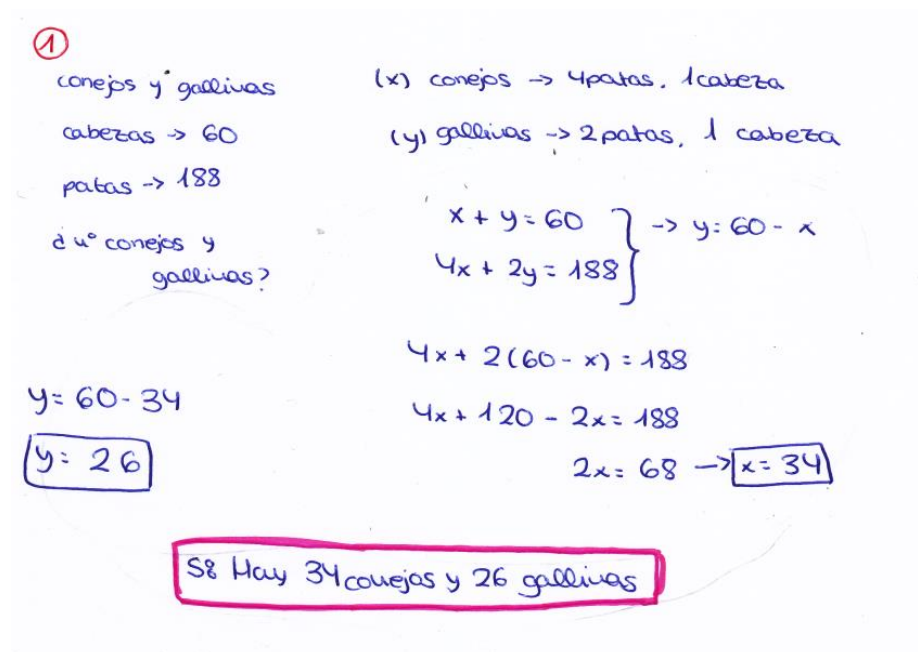 1
conejos y gallinas
cabezas -> 60
patas -> 188
¿nº conejos y
gallinas?
(x) conejos -> 4 patas, 1 cabeza
(y) gallinas -> 2 patas, 1 cabeza
x + y = 60
4x + 2y = 188
} -> y = 60 - x
4x + 2(60 - x) = 188
4x + 120 - 2x = 188
2x = 68 -> x = 34
y = 60 - 34
y = 26
S: Hay 34 conejos y 26 gallinas